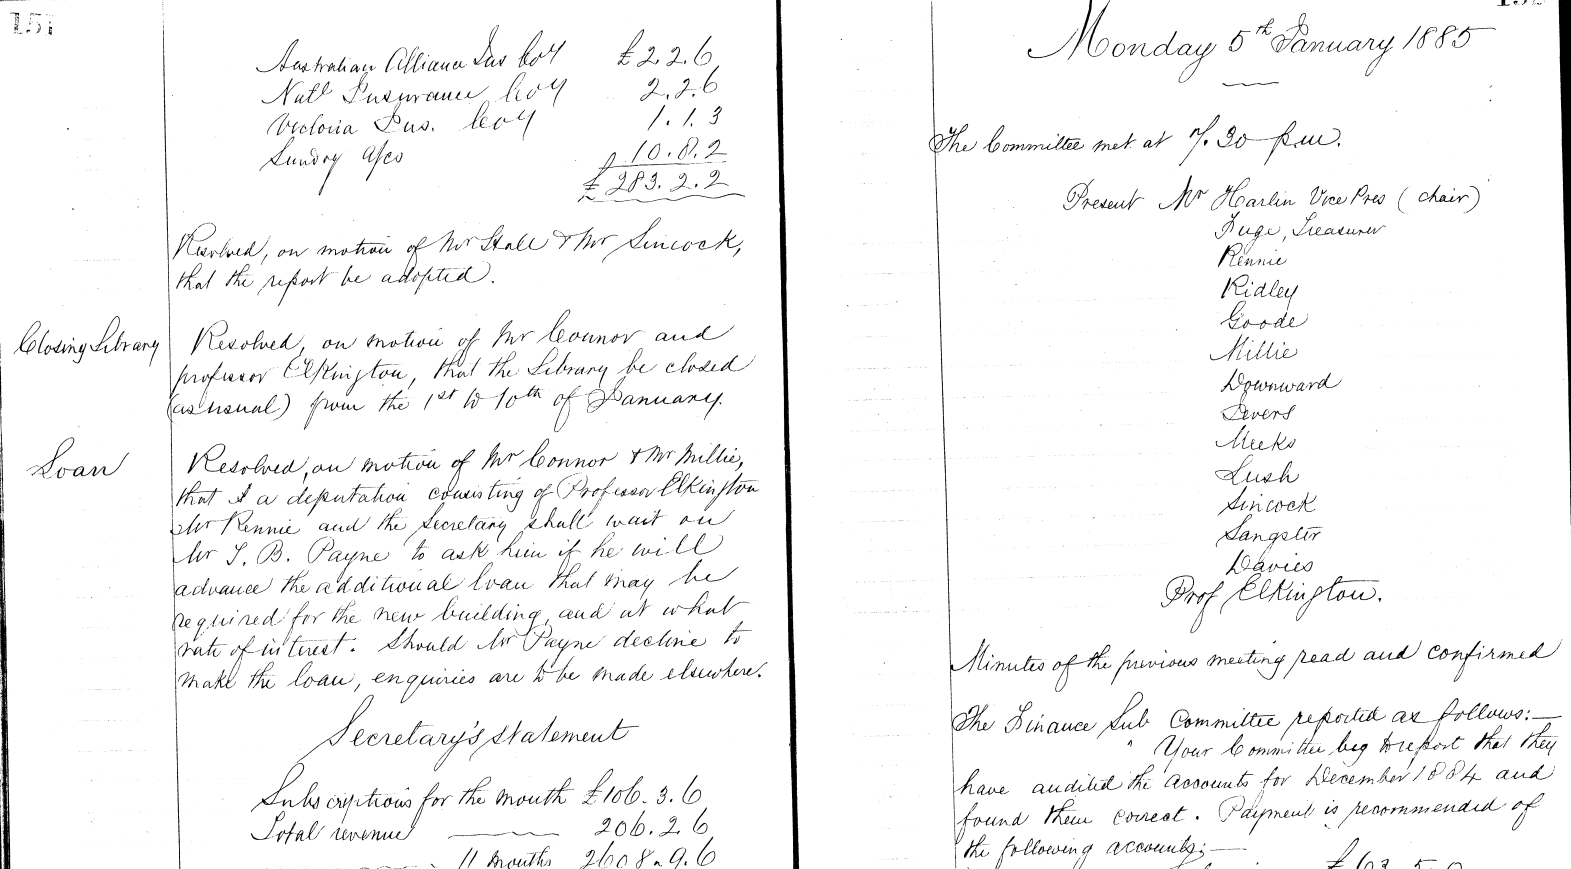 151
Australian Alliance Ins Coy £2.2.6
Natl Insurance Coy 2.2.6
Victoria Ins. Coy 1.1.3
Sundry a/cs 10.8.2
£283.2.2
Resolved, on motion of Mr Stall & Mr Sincock,
that the report be adopted.
Closing Library
Resolved, on motion of Mr Connor and
professor Elkington, that the Library be closed
(as usual) from the 1st to 10th of January.
Loan
Resolved, on motion of Mr Connor & Mr Millie,
that a deputation consisting of Professor Elkington
Mr Rennie and the Secretary shall wait on
Mr T. B. Payne to ask him if he will
advance the additional loan that may be
required for the new building, and at what
rate of interest. Should Mr Payne decline to
make the loan, enquiries are to be made elsewhere.
Secretary's statement
Subscriptions for the month £106.3.6
Total revenue 206.2.6
11 months 2608.9.6
Monday 5th January 1885
The Committee met at 7.30 p.m.
Present Mr Harlin Vice Pres (chair)
Fuge, Treasurer
Rennie
Ridley
Goode
Millie
Downward
Severs
Meeks
Lush
Sincock
Sangster
Davies
Prof Elkington.
Minutes of the previous meeting read and confirmed
The Finance Sub Committee reported as follows:—
" Your Committee beg to report that they
have audited the accounts for December 1884 and
found them correct. Payment is recommended of
the following accounts:—